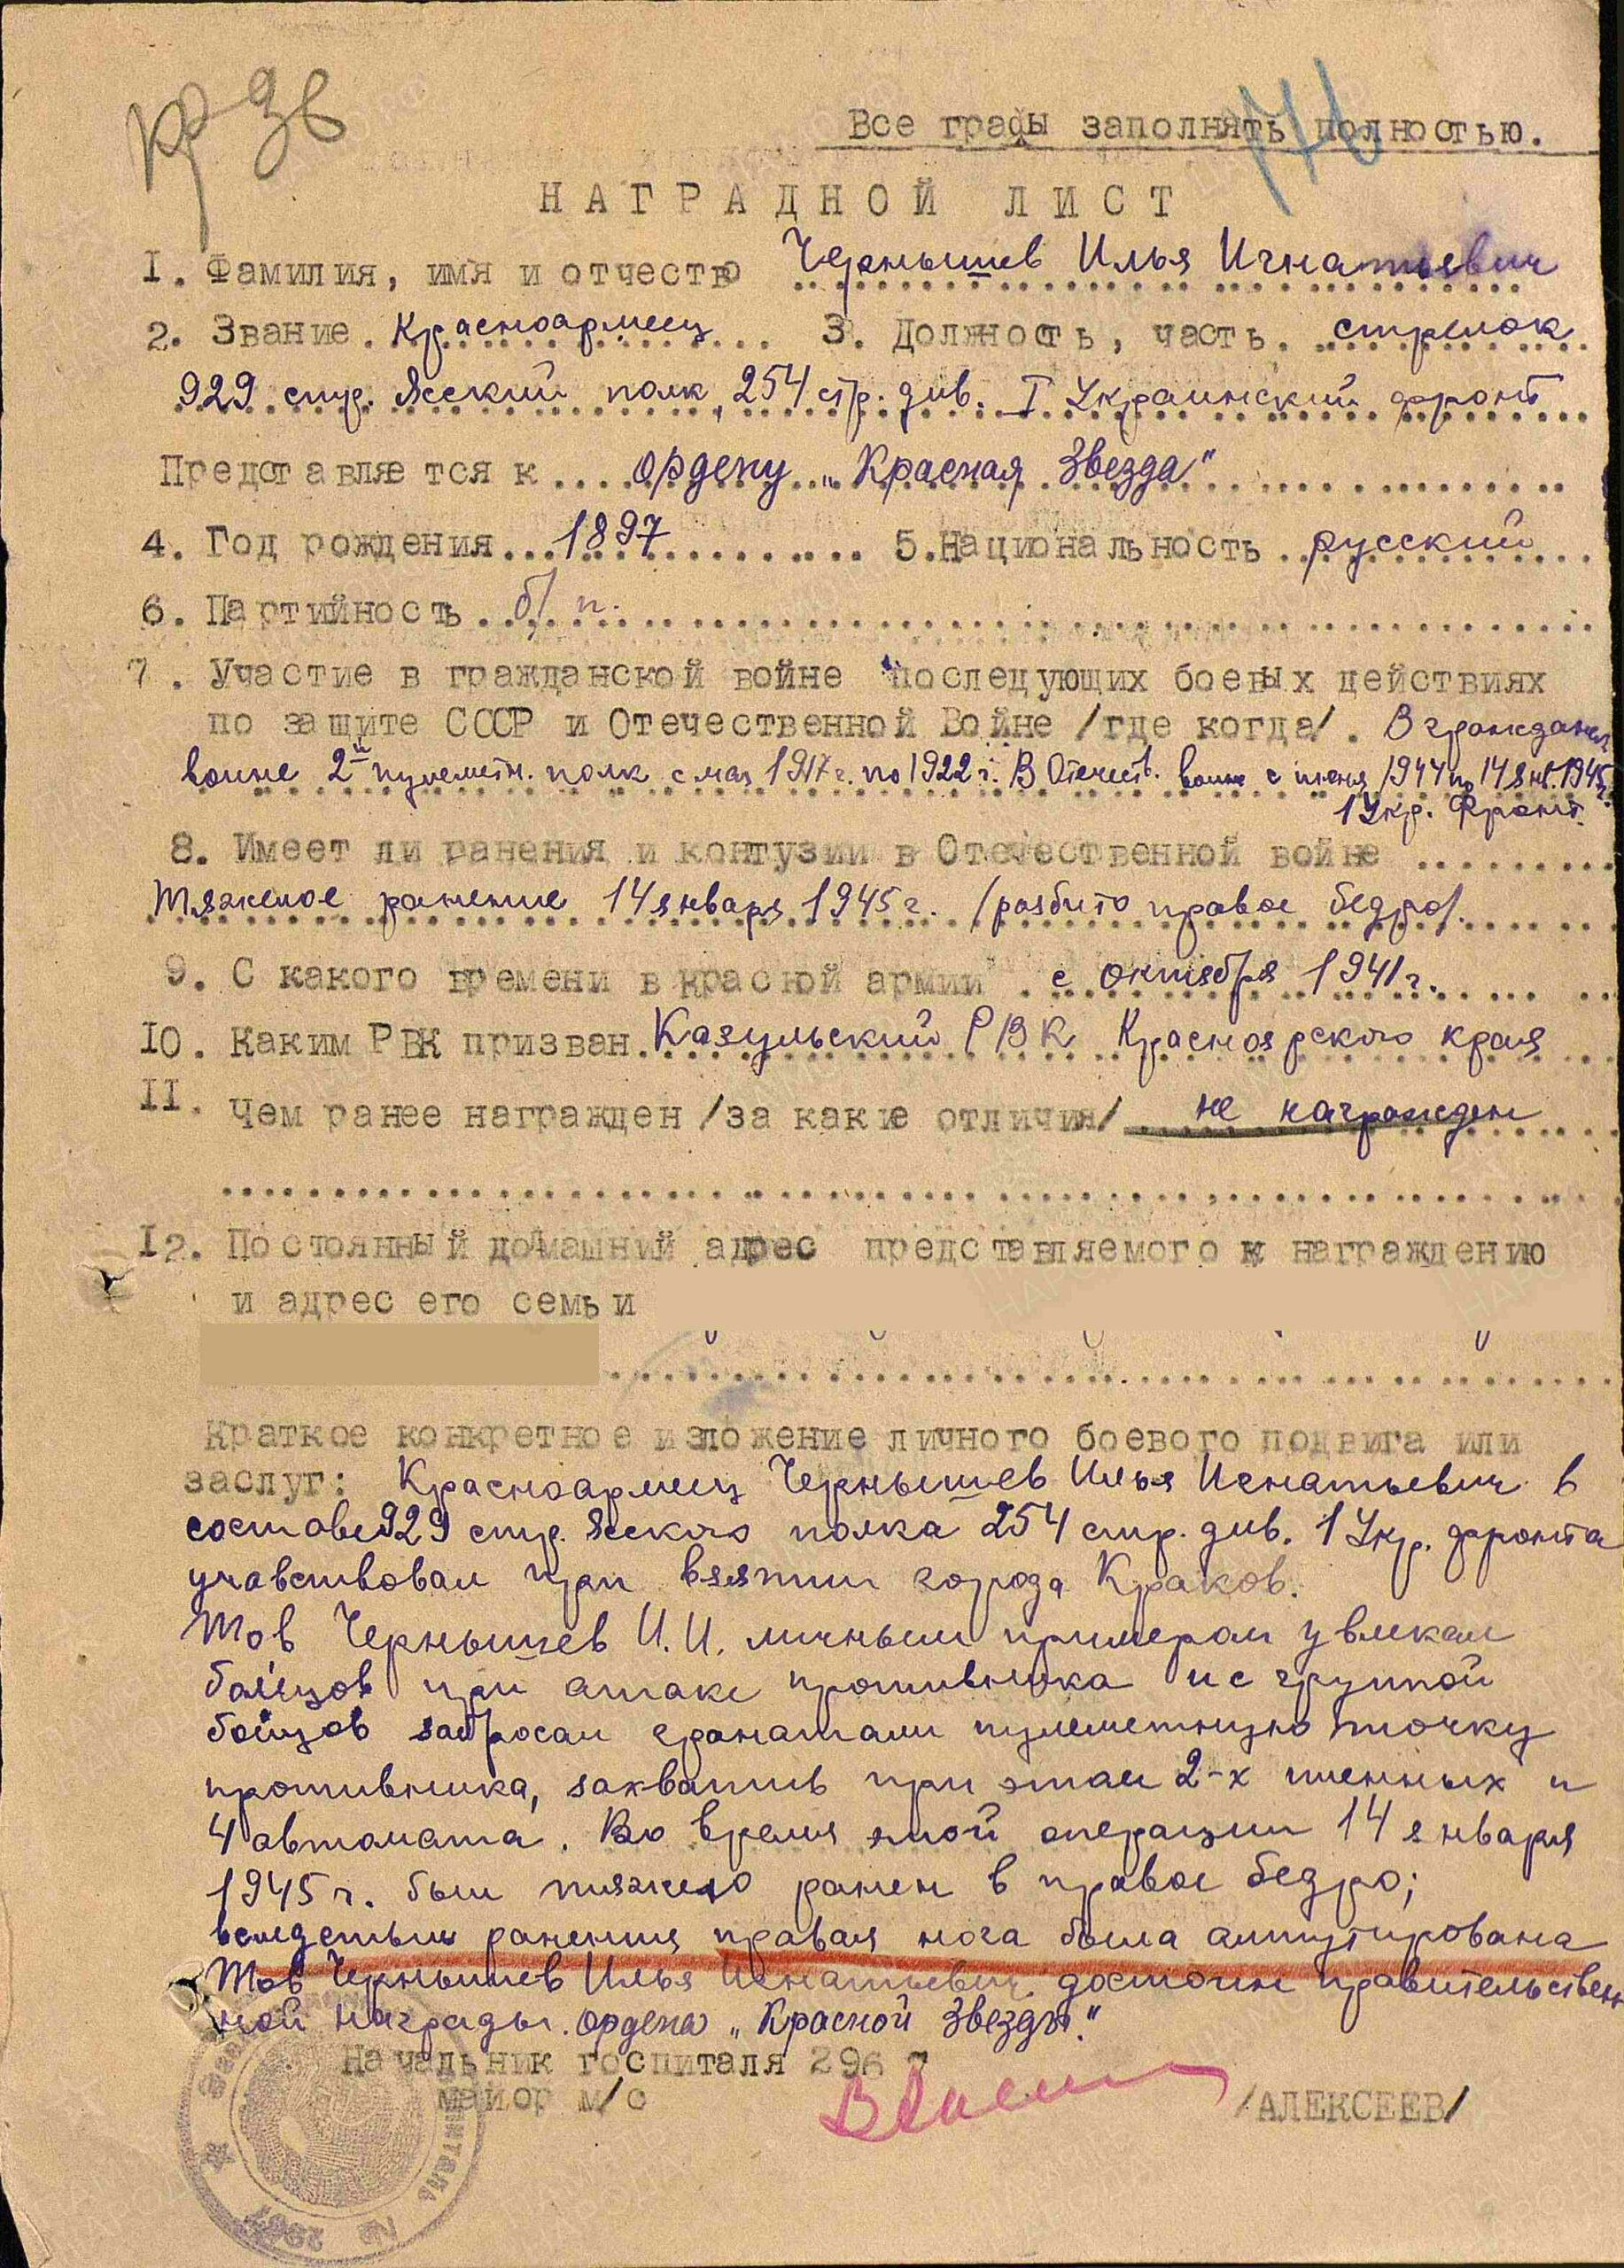 Кр Зв
176
Все графы заполнять полностью.
НАГРАДНОЙ ЛИСТ
1. Фамилия, имя и отчество Чернышев Илья Игнатьевич
2. Звание Красноармеец 3. Должность, часть. стрелок
929 стр. Ясский полк, 254 стр. див. I Украинский фронт
Представляется к ордену „Красная Звезда"
4. Год рождения 1897 5. Национальность русский
6. Партийность б/п.
7. Участие в гражданской войне последующих боевых действиях
по защите СССР и Отечественной Войне /где когда/. В гражданск
войне 2й пулеметн. полк с мая 1917 г. по 1922 г. В Отечеств. войне с июня 1944 по 14 янв. 1945 г.
1 Укр. Фронт.
8. Имеет ли ранения и контузии в Отечественной войне
Тяжелое ранение 14 января 1945 г. /разбито правое бедро/.
9. С какого времени в красной армии с октября 1941 г.
10. Каким РВК призван Казульский РВК Красноярского края
11. Чем ранее награжден /за какие отличия/ не награжден
12. Постоянный домашний адрес представляемого к награждению
и адрес его семьи
Краткое конкретное изложение личного боевого подвига или
заслуг: Красноармеец Чернышев Илья Игнатьевич в
составе 929 стр. Ясского полка 254 стр. див. 1 Укр. фронта
учавствовал при взятии города Краков.
Тов Чернышев И.И. личным примером увлекал
бойцов при атаке противника и с группой
бойцов забросал гранатами пулеметную точку
противника, захватив при этом 2-х пленных и
4 автомата. Во время этой операции 14 января
1945 г. был тяжело ранен в правое бедро;
вследствии ранения правая нога была ампутирована
Тов Чернышев Илья Игнатьевич достоин правительствен
ной награды. ордена „Красной Звезды."
Начальник госпиталя 296
майор м/с /АЛЕКСЕЕВ/